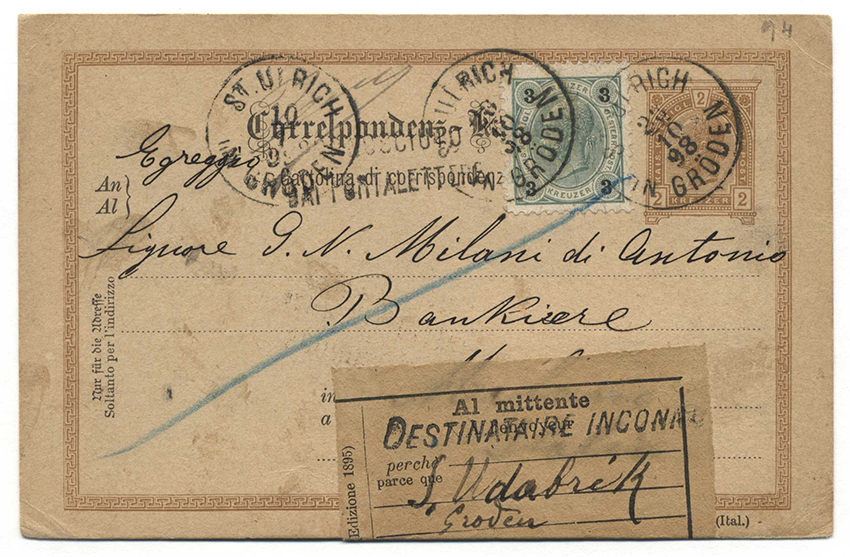 94
ST. ULRICH
10
IN GRÖDEN
ULRICH
10
98
IN GRÖDEN
ULRICH
10
98
IN GRÖDEN
3
3
3
3
KREUZER
2
2
2
KREUZER
Correspondenz
Cartolina di corrispondenz
PORTALETTERE
Egreggio
An
Al
Signore G. N. Milani di Antonio
Bankiere
in
a
Nur für die Adresse
Soltanto per l'indirizzo
Al mittente
DESTINATAIRE INCONNU
perchè
parce que
Groden
Edizione 1895)
(Ital.)